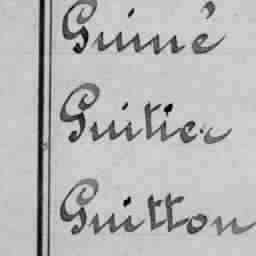 Guimé
Guitier
Guitton